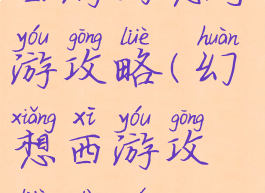 yóu gōng lüè huàn
游攻略(幻
xiǎng xī yóu gōng
想西游攻